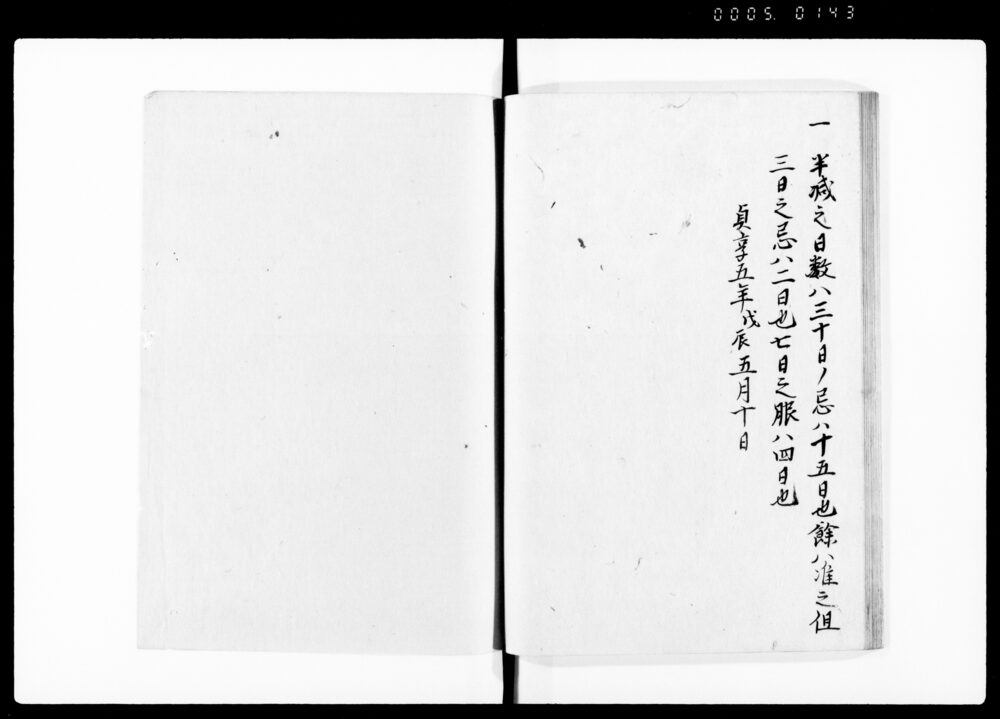 0005. 0143
一 半減之日数ハ三十日ノ忌ハ十五日也餘ハ准之但
三日之忌ハ二日也七日之服ハ四日也
貞享五年戊辰五月十日